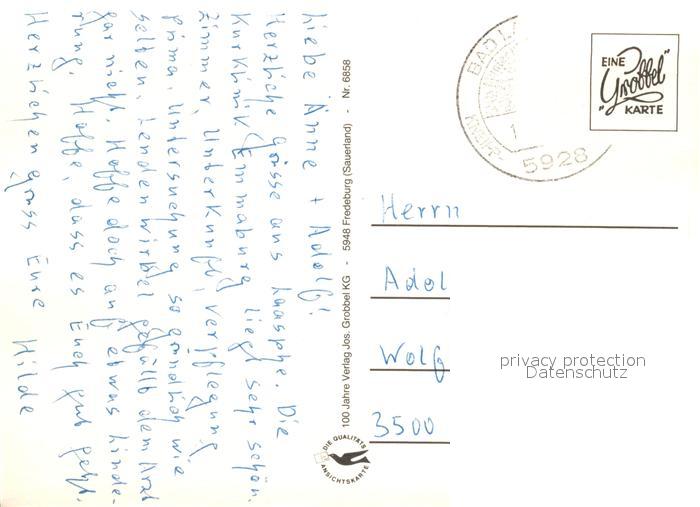 Liebe Änne + Adolf!
Herzliche Grüsse aus Laasphe. Die
Kurklinik (Emmaburg) liegt sehr schön.
Zimmer, Unterkunft, Verpflegung
prima. Untersuchung so gründlich wie
selten. Lendenwirbel gefällt dem Arzt
gar nicht. Hoffe doch auf etwas Linde-
rung. Hoffe, dass es Euch gut geht.
Herzlichen Gruss Eure Hilde
100 Jahre Verlag Jos. Grobbel KG - 5948 Fredeburg (Sauerland) - Nr. 6858
DIE QUALITÄTS
ANSICHTSKARTE
BAD LA
KNEIPP-
1
5928
EINE
"Grobbel"
KARTE
Herrn
Adol
Wolf
3500
privacy protection
Datenschutz